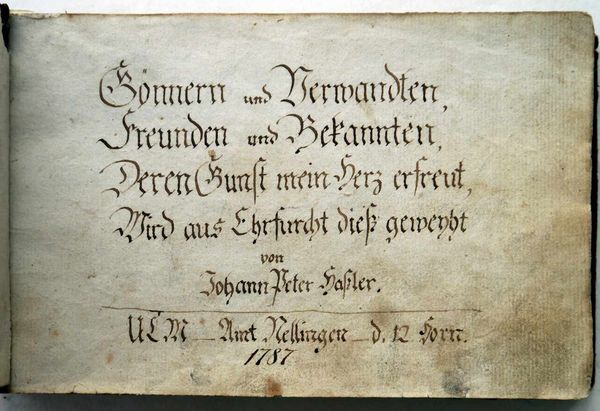 Gönnern und Verwandten,
Freunden und Bekannten,
Deren Gunst mein Herz erfreut,
Wird aus Ehrfurcht dieß geweyht
von
Johann Peter Haßler.
ULM Amt Nellingen d. 12 Horn.
1787